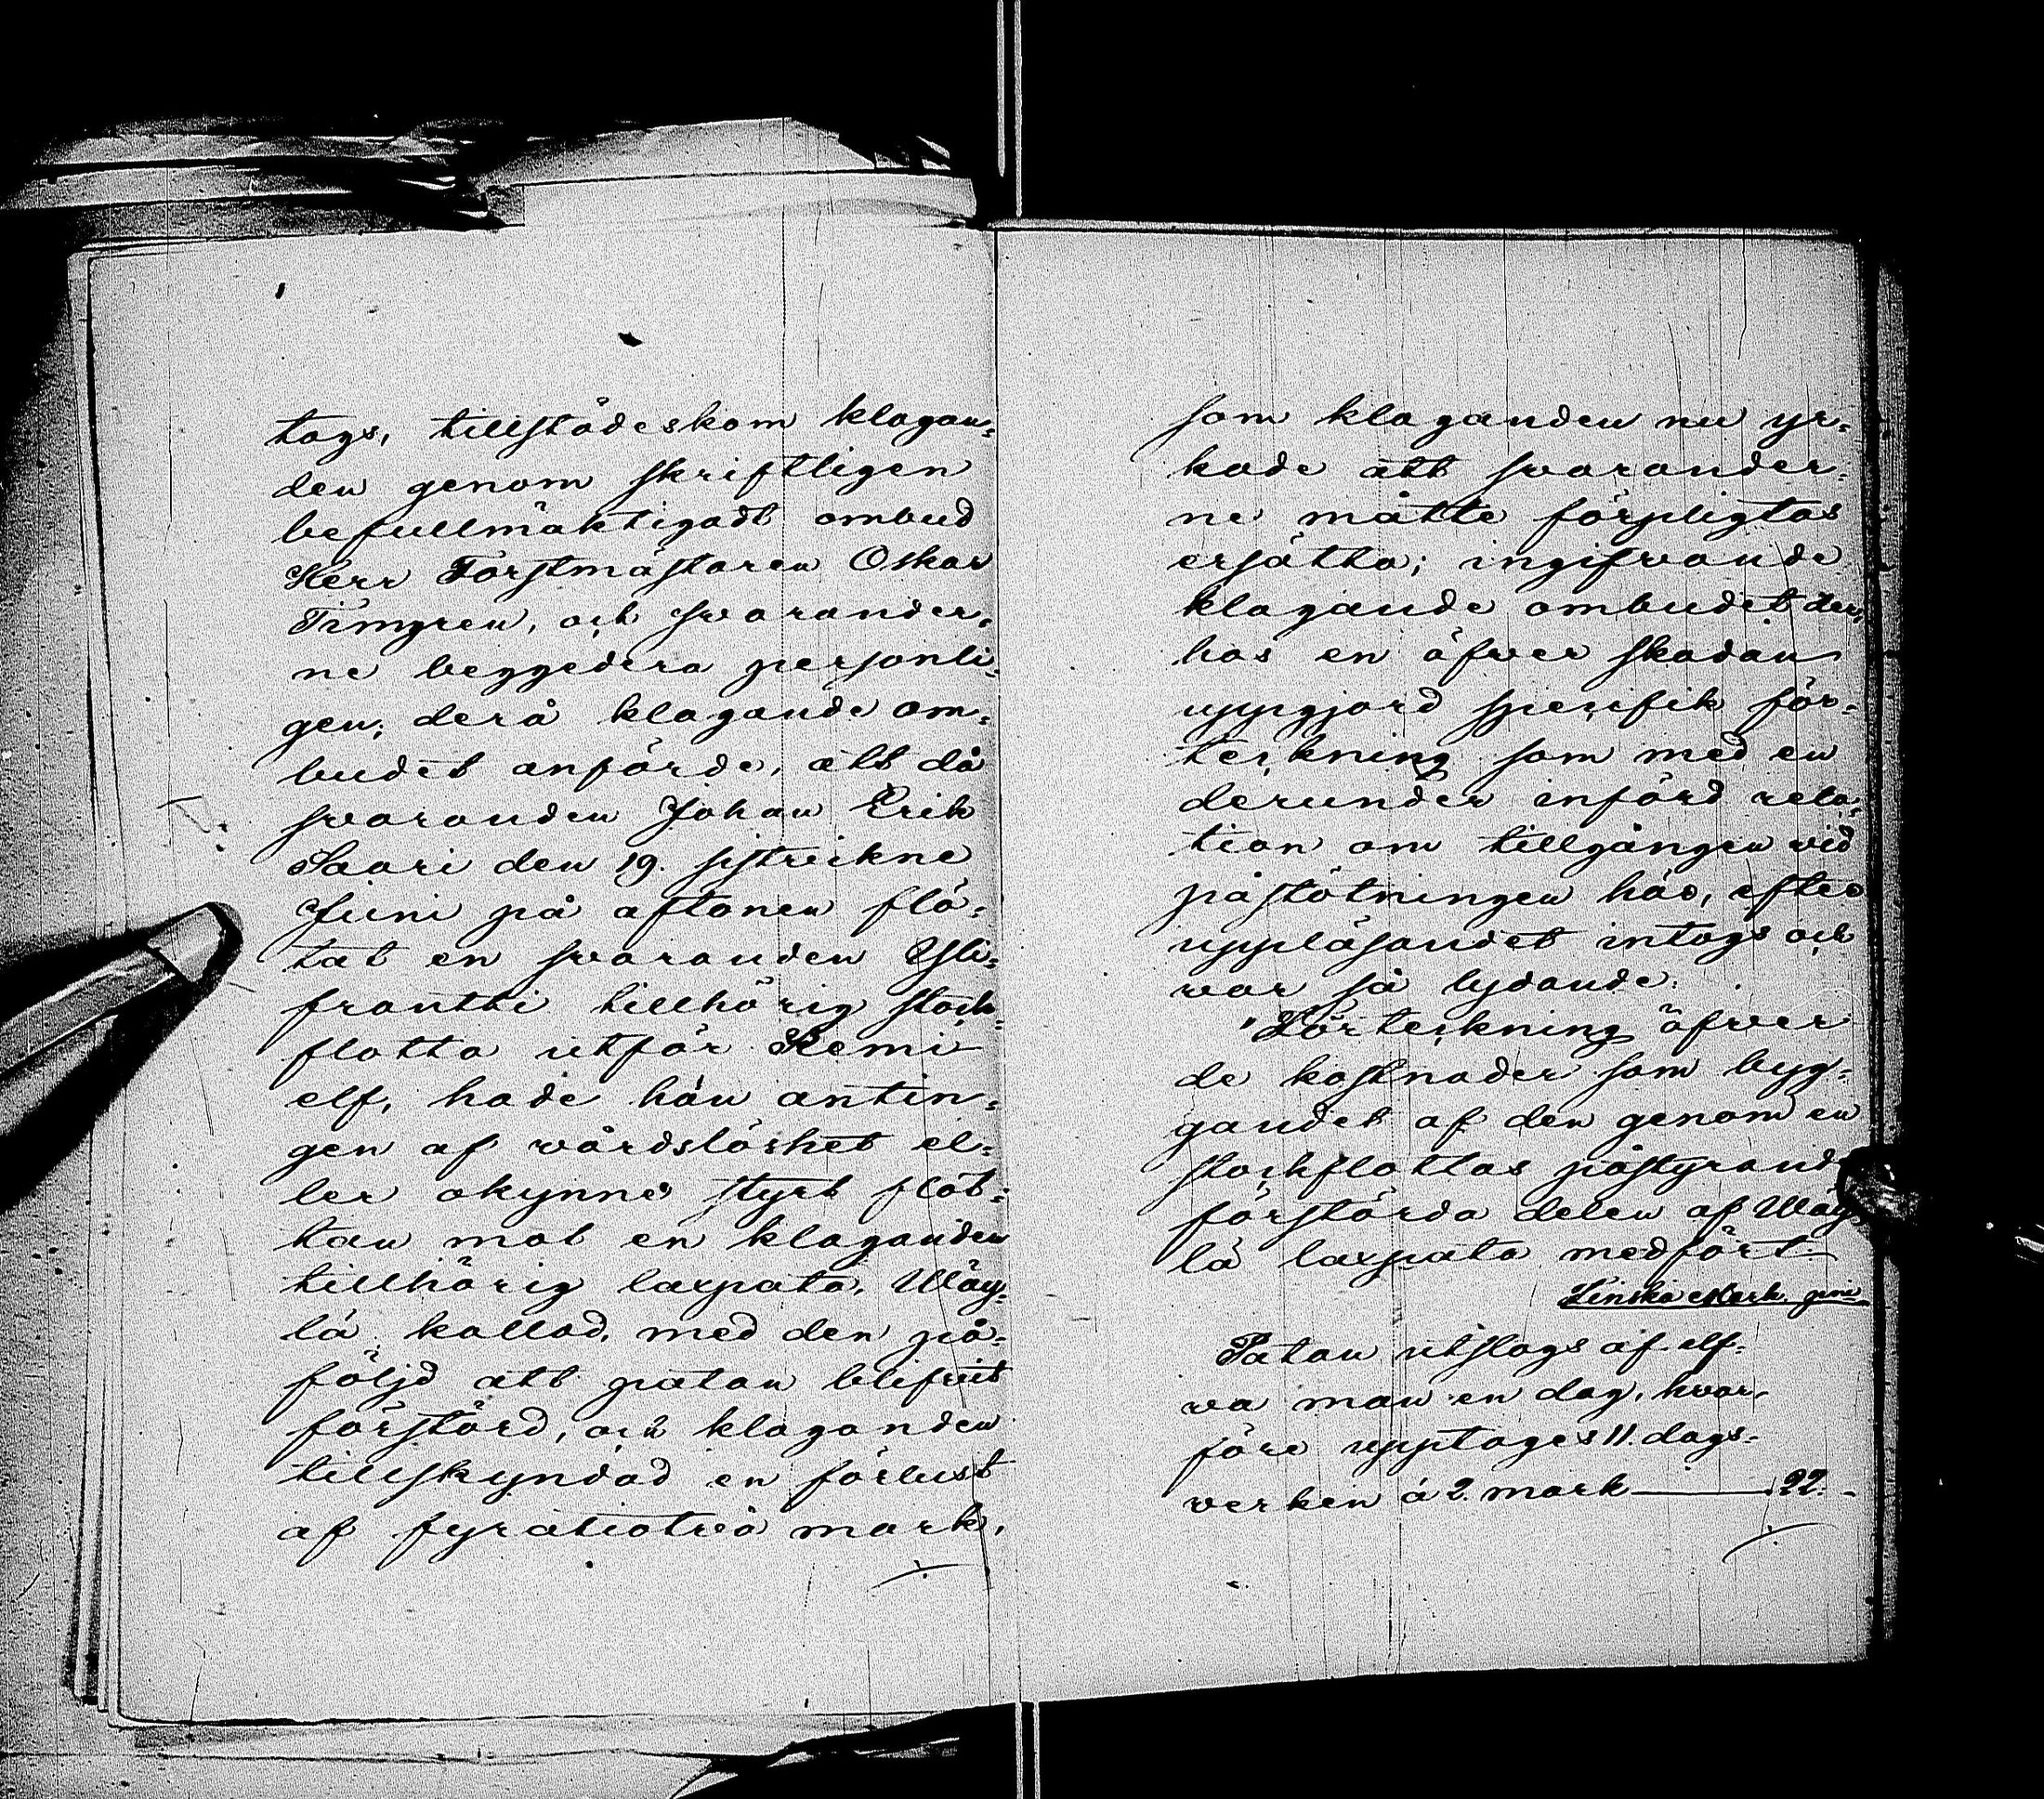 togs, tillstädeskom klagan-
den genom skriftligen
befullmäktigadt ombud
Herr Forstmästaren Oskar
Timgren, och svarander-
ne beggedera personli-
gen; derå klagande om-
budet anförde, att då
svaranden Johan Erik
Saari den 19. sistvikne
Juni på aftonen flö-
tat en svaranden Yli-
frantti tillhörig stock-
flotta utför Kemi
elf, hade han antin-
gen af vårdslöshet el-
ler okynne styrt flot-
tan mot en klaganden
tillhörig laxpata, Wäy-
lä kallad, med den på-
följd att patan blifvit
förstörd, och klaganden
tillskyndad en förlust
af fyratiotvå mark,
som klaganden nu yr-
kade att svarander-
ne måtte förpligtas
ersätta; ingifvande
klagande ombudet der-
hos en öfver skadan
uppgjord specifik för-
teckning som med en
derunder införd rela-
tion om tillgången vid
påstötningen här, efter
uppläsandet intogs och
var så lydande:
"Förteckning öfver
de kostnader som byg-
gandet af den genom en
stockflottas påstyrande
förstörda delen af Wäy-
lä laxpata medfört.
Finska Mark. pni
Patan utslogs af elf-
va man en dag, hvar-
före upptages 11. dags-
verken á 2. mark 22. -